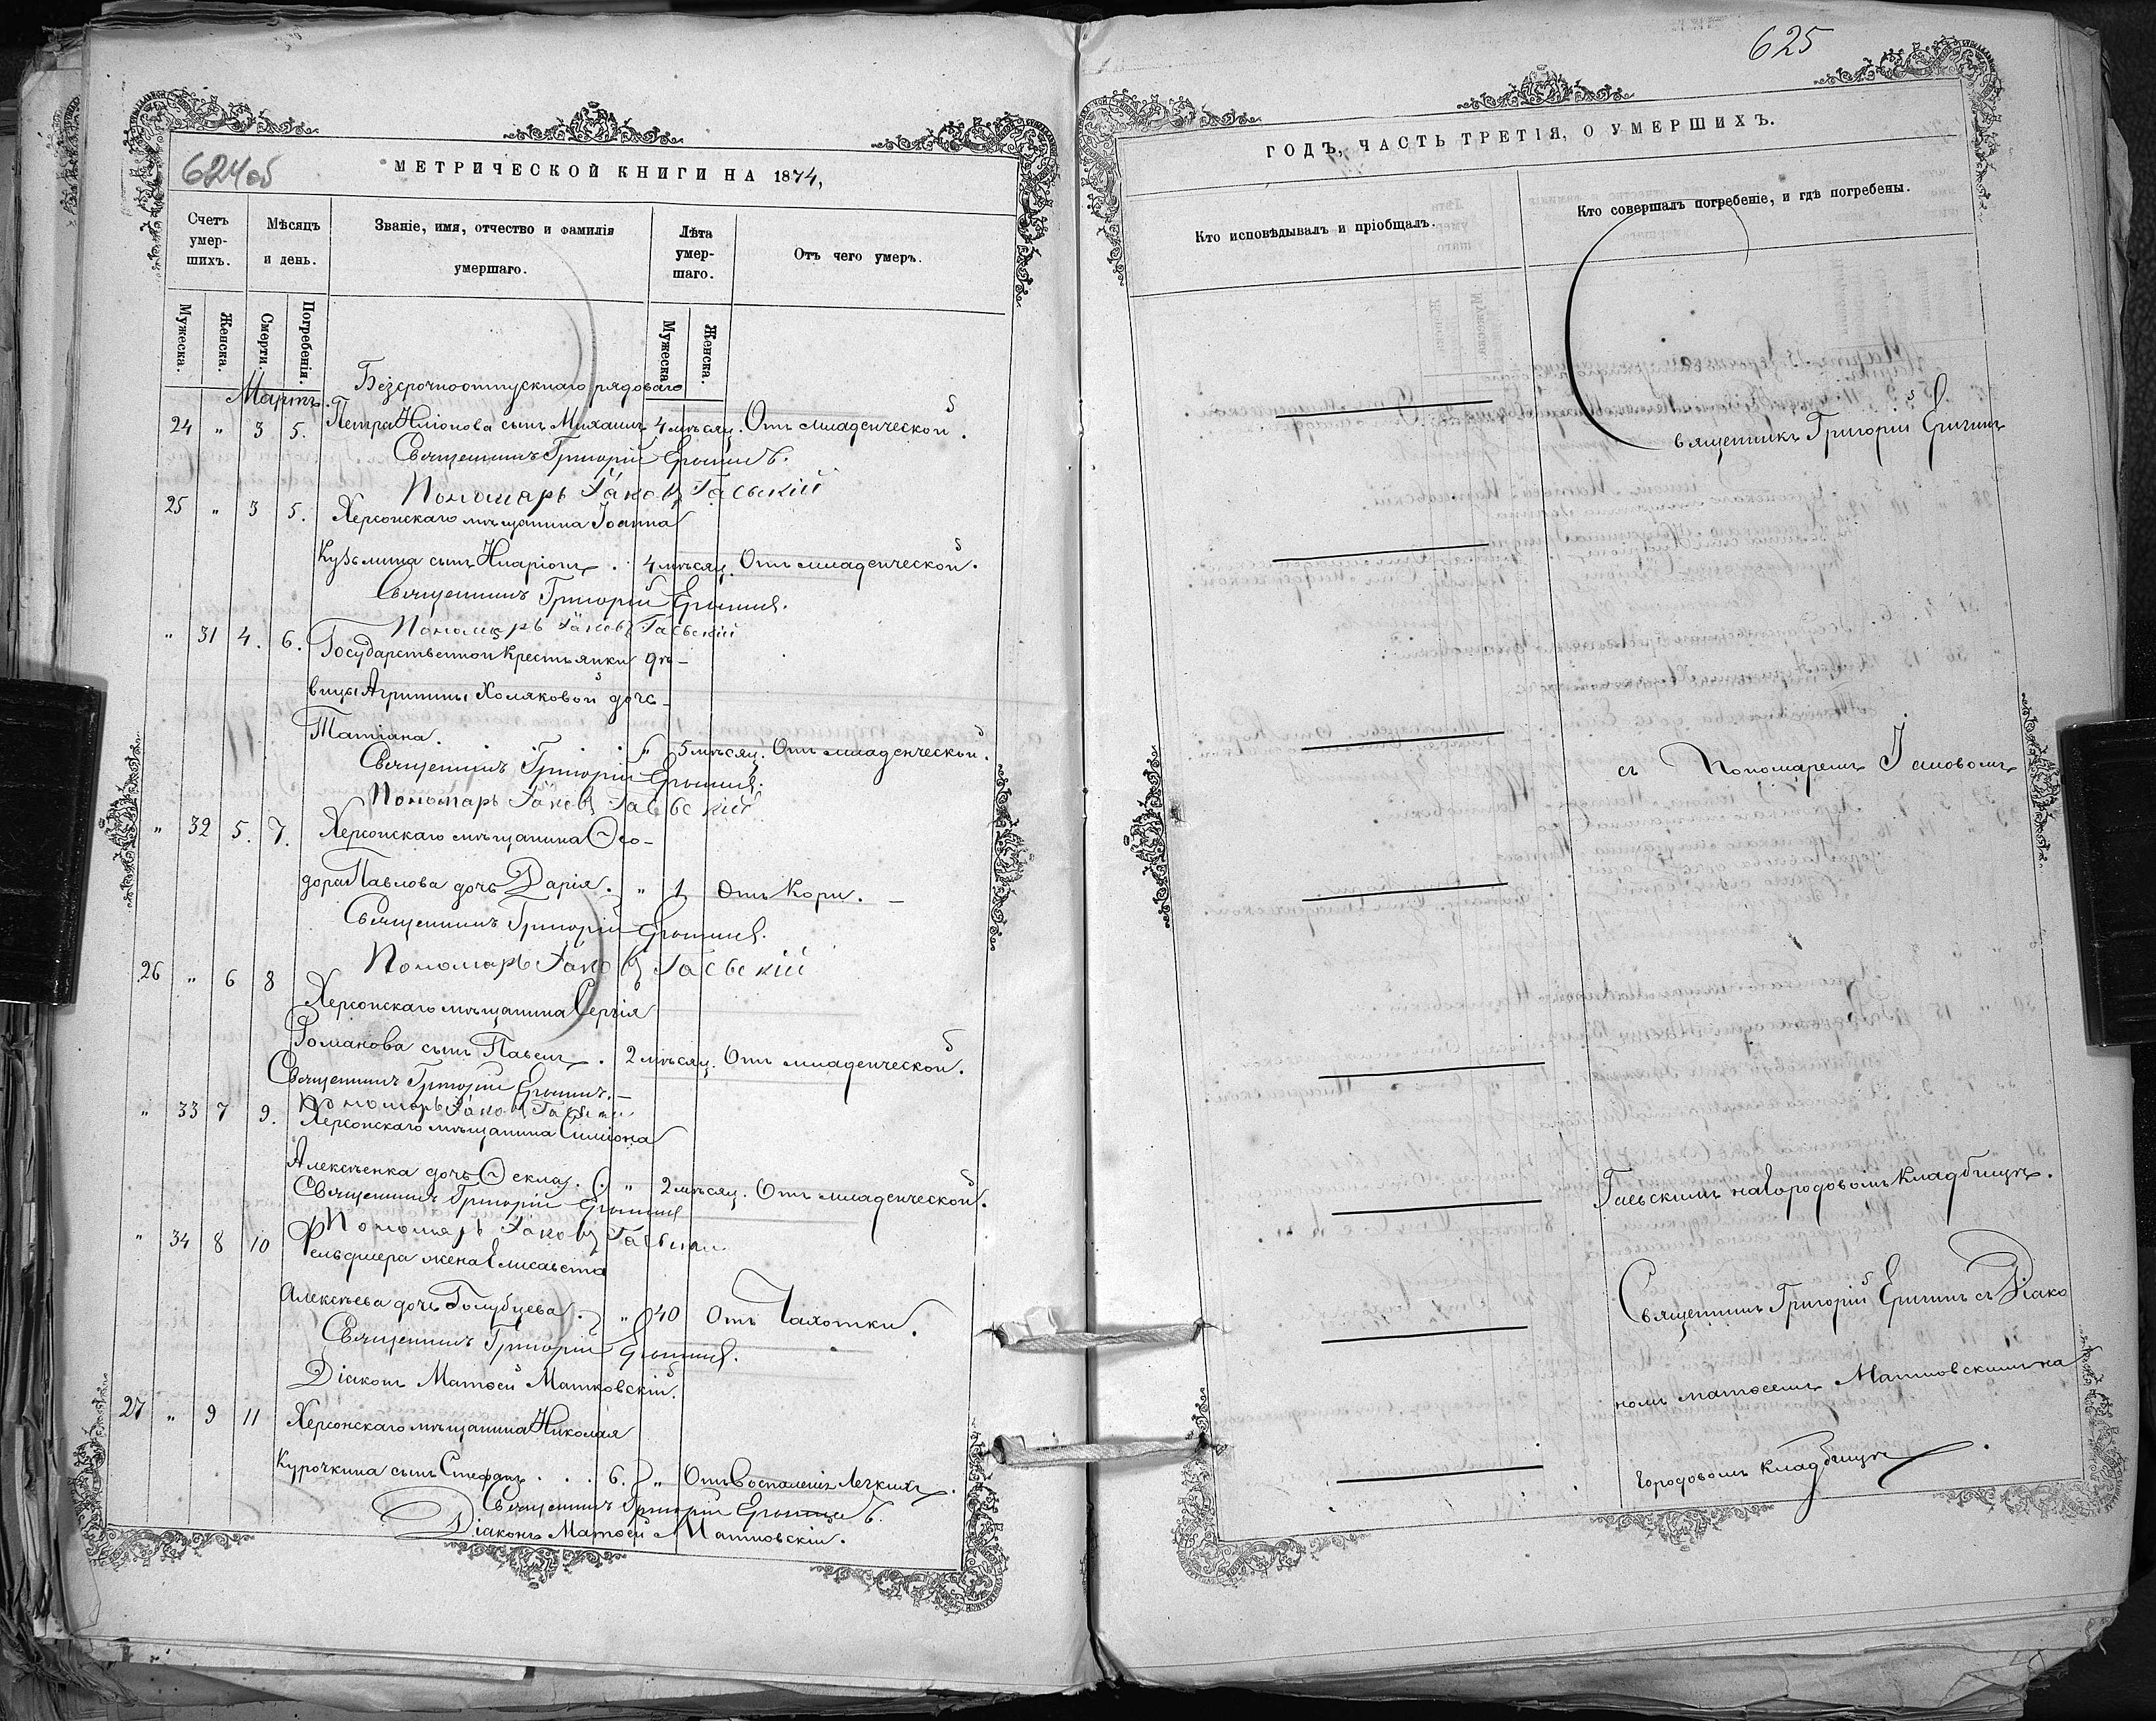 624об
МЕТРИЧЕСКОЙ КНИГИ НА 1874,
Счетъ умер-шихъ.
Мѣсяцъ и день.
Званіе, имя, отчество и фамилія умершаго.
Лѣта умер-шаго.
Отъ чего умеръ.
Мужеска.
Женска.
Смерти.
Погребенія.
Мужеска.
Женска.
Мартъ.
Безсрочноотпускнаго рядоваго
24 " 3 5. Петра сынъ Михаилъ 4 мѣсяц. Отъ младенческой.
Священникъ Григорій
Пономарь Іаковъ Гаевскій
25 " 3 5. Херсонскаго мѣщанина Іоанна
Кузьмина сынъ Иларіонъ. 4 мѣсяц. Отъ младенческой.
Священникъ Григорій
Пономарь Іаковъ Гаевскій
" 31 4. 6. Государственной крестьянки дѣ-
вицы Агрипины Холяковой дочь
Татіана. " 5 мѣсяц. Отъ младенческой.
Священникъ Григорій
Пономарь Іаковъ Гаевскій
" 32 5. 7. Херсонскаго мѣщанина Ѳео-
дора Павлова дочь Дарія. " 1 Отъ Кори.
Священникъ Григорій
Пономарь Іаковъ Гаевскій
26 " 6 8 Херсонскаго мѣщанина Сергія
Романова сынъ Павелъ. 2 мѣсяц. Отъ младенческой.
Священникъ Григорій
Пономарь Іаковъ Гаевскій
" 33 7 9. Херсонскаго мѣщанина Симіона
Алексѣенка дочь Ѳекла. " 2 мѣсяц. Отъ младенческой.
Священникъ Григорій
Пономарь Іаковъ Гаевскій
" 34 8 10 Фельдшера жена Елисавета
Алексѣева дочь Голубцева. " 40 Отъ Чахотки.
Священникъ Григорій
Діаконъ Матѳей Матковскій.
27 " 9 11 Херсонскаго мѣщанина Николая
Курочкина сынъ Стефанъ . . . 6. " Отъ Воспаленія Легкихъ.
Священникъ Григорій
Діаконъ Матѳей Матковскій.
625
ГОДЪ, ЧАСТЬ ТРЕТІЯ, О УМЕРШИХЪ.
Кто исповѣдывалъ и пріобщалъ.
Кто совершалъ погребеніе, и гдѣ погребены.
Священникъ Григорій
съ Пономаремъ Іаковомъ
Гаевскимъ на Городовомъ Кладбищѣ.
Священникъ Григорій съ Діако
номъ Матѳеемъ Матковскимъ на
Городовомъ Кладбищѣ.